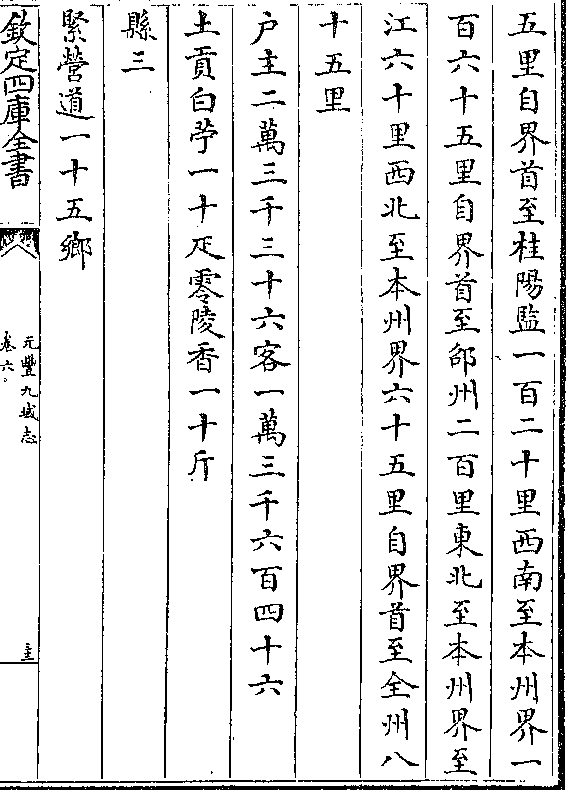 五里自界首至桂陽監一百二十里西南至本州界一
百六十五里自界首至邵州二百里東北至本州界至
江六十里西北至本州界六十五里自界首至全州八
十五里
户主二萬三千三十六客一萬三千六百四十六
土貢白苧一十疋零陵香一十斤
縣三
緊營道一十五鄉
欽定四庫全書
元豐九域志
卷六